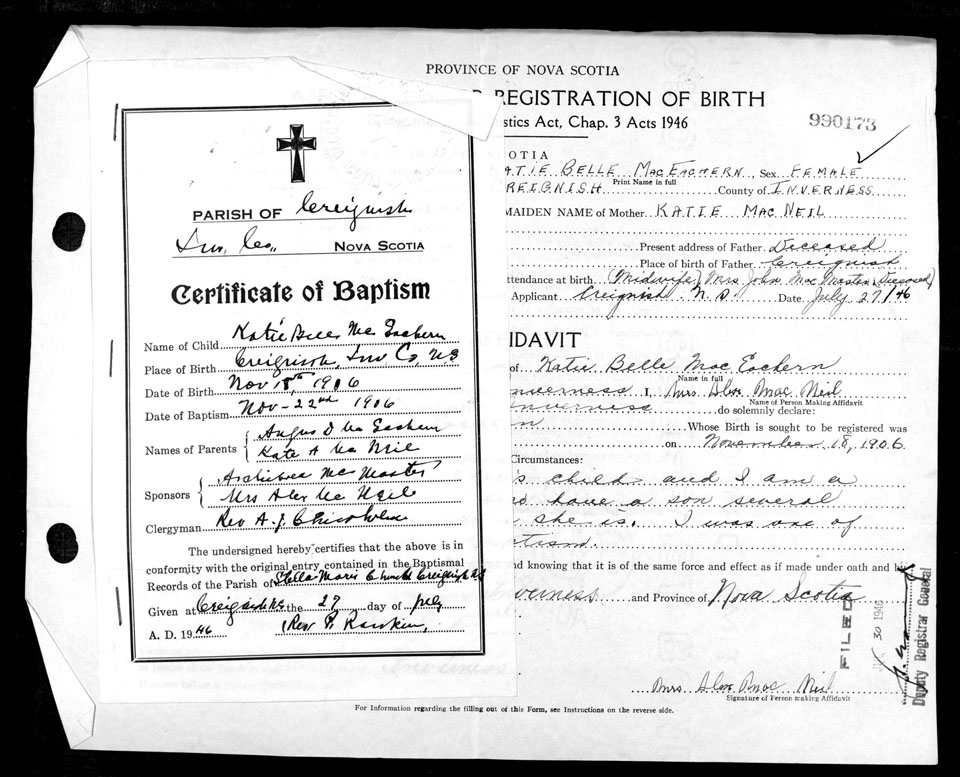 PROVINCE OF NOVA SCOTIA
REGISTRATION OF BIRTH
stics Act, Chap. 3 Acts 1946
990173
PARISH OF Creignish
Inv. Co., NOVA SCOTIA
Certificate of Baptism
Name of Child Katie Belle Mc Eachern
Place of Birth Creignish, Inv Co, N.S
Date of Birth Nov 18th 1906
Date of Baptism Nov - 22nd 1906
Names of Parents Angus D Mc Eachern
Kate A Mc Neil
Sponsors Mc Master
Mrs Alex Mc Neil
Clergyman Rev A. J. Chisholm
The undersigned hereby certifies that the above is in
conformity with the original entry contained in the Baptismal
Records of the Parish of Stella Maris Church Creignish N.S
Given at Creignish the 27 day of July
A. D. 1946 Rev P. Rankin,
OTIA
ATIE BELLE MAC EACHERN, Sex FEMALE
Print Name in full
REIGNISH County of INVERNESS
MAIDEN NAME of Mother KATIE MAC NEIL
Present address of Father Deceased
Place of birth of Father Creignish
ttendance at birth (Midwife) Mrs John Mac Master (Deceased)
Applicant Creignish N. S Date July 27/46
IDAVIT
of Katie Belle Mac Eachern
Name in full
nverness I, Mrs Alex Mac Neil
Name of Person Making Affidavit
nverness do solemnly declare:
n Whose Birth is sought to be registered was
on November 18, 1906.
Circumstances:
s child and I am a
have a son several
she is. I was one of
tism.
nd knowing that it is of the same force and effect as if made under oath and
verness and Province of Nova Scotia
FILED
30 1946
Deputy Registrar General
Mrs Alex Mac Neil
Signature of Person making Affidavit
For Information regarding the filling out of this Form, see Instructions on the reverse side.